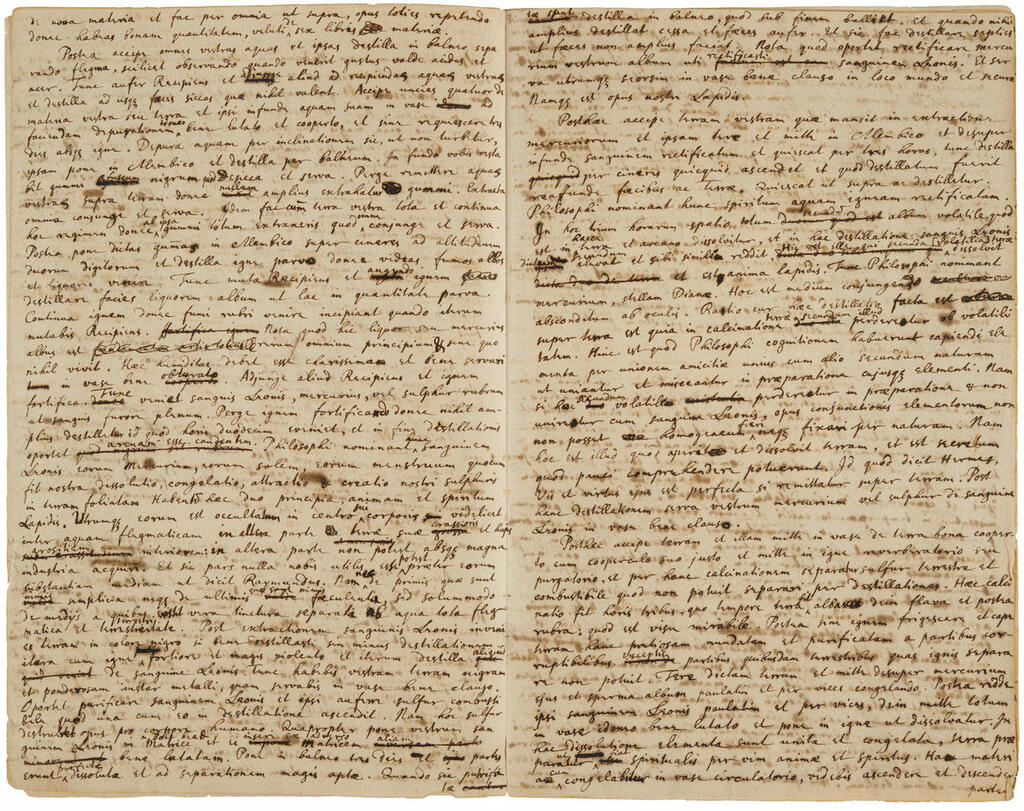 de nova materia et fac per omnia ut supra, opus toties repetendo
donec habeas bonam quantitatem, veluti sex libras de materiæ.
Postea accipe omnes vestras aquas et ipsas destilla in balneo sepa
rando flegma, scilicet observando quando venerit gustus valde acidus et
acer. Tunc aufer Recipiens et aliud ad recipiendam aquam vestram
et destilla ad usque fæces siccas quæ nihil valent. Accipe uncias quatuor de
materia vestra seu terra et ipsi infunde aquam suam in vase ad
faciendam depurationem bene lutato et cooperto, et sine requiescere tres
dies absque igne. Depura aquam per inclinationem sic, ut non turbetur,
ipsam pone in Alembico et destilla per balneum. In fundo vobis resta
bit gummi nigrum desicca et serva. Perge remittere aquam
vestram supra terram donec amplius extrahatur gummi. Extracta
omnia conjunge et serva. Idem fac cum terra vestra tota et continua
hoc regimen donec gummi totum extraxeris quod conjunge et serva.
Postea pone dictas gummas in Alembico super cineres ad altitudinem
duorum digitorum et destilla igne parvo donec videas fumos albos
et liquore Tunc muta Recipiens et augendo ignem
destillare facies liquorem album ut lac in quantitate parva.
Continua ignem donec fumi rubri venire incipiant quando iterum
mutabis Recipiens. Nota quod hic liquor seu mercurius
albus est verum omnium principium & sine quo
nihil vivit. Hæc debet esse clarissima et bene servari
in vase bene obturato. Adjunge aliud Recipiens et ignem
fortifica. tunc veniet sanguis Leonis, mercurius, vel sulphur rubrum
ut sanguis furore plenum. Perge ignem fortificando donec nihil am
plius destilletur id quod horis duodecim eveniet, et in fine destillationis
oportet arenam esse candentem. Philosophi nominant hunc sanguinem
Leonis eorum Mercurium, eorum solem, eorum menstruum quocum
fit nostra dissolutio, congelatio, attractio & creatio nostri sulphuris
in terram foliatam. Habent hæc duo principia animam et spiritum
Lapidis. Utrumque eorum est occultatum in centro sui corporis videlicet
inter aquam flegmaticam in altera parte & terræ suæ crassioris
interiorem: in altera parte non potest absque magna
industria acquiri. Et sic pars nulla nobis utilis est præter eorum
substantiam mediam ut dicit Raymundus. Nam nec de primis quæ sunt
simplicia neque de ultimis sed solummodo
de medijs a quibus vera tinctura separata ab aqua tota fleg
matica et terrestreitate. Post extractionem sanguinis Leonis inveni
es terram in colore nigro si bene destillasti, sin minus destillationem
itera cum igne fortiore et magis violento et iterum destilla
de sanguine Leonis. Tunc habebis vestram terram nigram
et ponderosam instar metalli, quam servabis in vase bene clauso.
Oportet purificare sanguinem Leonis et ipsi auferre sulfur combusti
bile quod una cum eo in destillatione ascendit. Nam hoc sulfur
destrueret opus pro corpore humano. Quapropter pone vestrum san
guinem Leonis in Matrice et si Matricem
bene lutatam. Pone in balneo tres dies et partes
erunt dissolutæ et ad separationem magis aptæ. Quando sic putrefac
tæ
tæ sunt destilla in balneo, quod sub finem bulliet. Et quando nihil
amplius destillat cessa et fæces aufer. Et sic fac destillare septies
ut fæces non amplius faciat. Nota quod oportet rectificare mercu
rium vestrum album uti rectificasti sanguinem Leonis. Et ser
va utrumque seorsim in vase bene clauso in loco mundo et securo
Namque est opus nostri Lapidis.
Posthac accipe terram vestram quæ mansit in extractione
mercuriorum et ipsam tere et mitte in Alembico et desuper
infunde sanguinem rectificatum et quiescat per tres horas, tunc destilla
per cineres quicquid ascendet et quod destillatum fuerit
reaffunde fæcibus ac terræ. Quiescat ut supra ac destilletur.
Philosophi nominant hunc spiritum aquam igneam rectificatam.
In hoc trium horarum spatio totum album volatile quod
est in terra et arcano dissolvitur, et in hac destillatione sanguis Leonis
elevat et sibi simile reddit
et est anima lapidis. Tunc Philosophi nominant
mercurium, stellam Dianæ. Hoc est medium conjungendi
absconditum ab oculis. Ratio cur hæc destillatio facta est
super terra est quia in calcinatione terræ perderetur ob volatili
tatem. Hinc est quod Philosophi cognitionem habuerunt capiendi ele
menta per unionem amicitiæ unius cum alio secundum naturam
ut uniantur et misceantur in præparatione cujusque elementi. Nam
si hoc secundum volatile perderetur in præparatione & non
uniretur cum sanguine Leonis, opus conjunctionis elementorum non
non posset fieri homogeneum neque fixari per naturam. Nam
hoc est illud quod aperit et dissolvit terram, et est secretum
quod pauci comprehendere potuerunt. Id quod dicit Hermes,
Vis et virtus ejus est perfecta si remittatur super terram. Post
hanc destillationem serva vestrum mercurium vel sulphur de sanguine
Leonis in vase bene clauso.
Posthæc accipe terram et illam mitte in vase de terra bona cooper
to cum cooperculo suo justo et mitte in igne reverberatorio seu
purgatorio, et per hanc calcinationem separatur sulfur terrestre et
combustibile quod non potuit separari per destillationes. Hæc calci
natio fit horis tribus, quo tempore terra fit alba dein flava et postea
rubra: quod est visu mirabile. Postea sine ignem frigescere et cape
terram hanc pretiosam mundatam et purificatam a partibus cor
ruptibilibus, partibus quibusdam terrestribus quas ignis separa
re non potuit. Tere dictam terram et mitte desuper mercurium
ejus et sperma album paulatim et per vices congelando. Postea redde
ipsi sanguinem Leonis paulatim et per vices, dein mitte totum
in vase idoneo bene lutato et pone in igne ut dissolvatur. In
hac dissolutione elementa sunt unita et congelata, terra præ
parata spiritualis per viam animæ et spiritus. Hæc materi
a cum congelabitur in vase circulatorio, videbis ascendere et descendere
partes